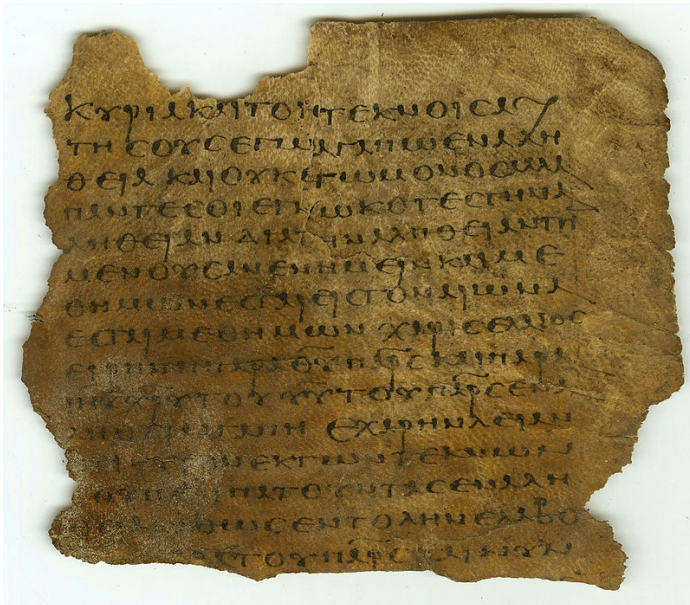 ΚΥΡΙΑ ΚΑΙ ΤΟΙϹ ΤΕΚΝΟΙϹ ΑΥ
ΤΗϹ ΟΥϹ ΕΓΩ ΑΓΑΠΩ ΕΝ ΑΛΗ
ΘΕΙΑ ΚΑΙ ΟΥΚ ΕΓΩ ΜΟΝΟϹ ΑΛΛΑ
ΠΑΝΤΕϹ ΟΙ ΕΓΝΩΚΟΤΕϹ ΤΗΝ Α
ΛΗΘΕΙΑΝ ΔΙΑ ΤΗΝ ΑΛΗΘΕΙΑΝ ΤΗ
ΜΕΝΟΥϹΑΝ ΕΝ ΗΜΕΙΝ ΚΑΙ ΜΕ
Θ ΗΜΩΝ ΕϹΤΑΙ ΕΙϹ ΤΟΝ ΑΙΩΝΑ
ΕϹΤΑΙ ΜΕΘ ΗΜΩΝ ΧΑΡΙϹ ΕΛΑΙΟϹ
ΕΙΡΗΝΗ ΠΑΡΑ Θ̅Υ̅ Π̅Ρ̅Ϲ̅ ΚΑΙ ΠΑΡΑ
ΤΟΥ Υ̅Υ̅ ΤΟΥ Π̅Ρ̅Ϲ̅ ΕΝ Α
ΑΓΑΠΗ ΕΧΑΡΗΝ ΛΕΙΑΝ
ΕΚ ΤΩΝ ΤΕΚΝΩΝ
ΠΕΡΙΠΑΤΟΥΝΤΑϹ ΕΝ ΑΛΗ
ΚΑΘΩϹ ΕΝΤΟΛΗΝ ΕΛΑΒΟ
ΤΟΥ Π̅Ρ̅Ϲ̅ ΚΑΙ ΝΥΝ